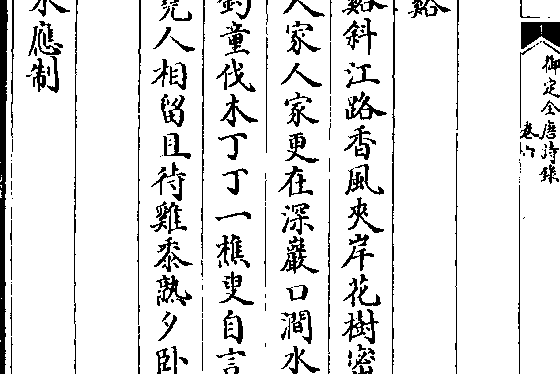 御定全唐詩錄
卷六
谿
谿斜江路香風夾岸花樹密
人家人家更在深巖口澗水
釣童伐木丁丁一樵叟自言
堯人相留且待雞黍熟夕卧
水應制